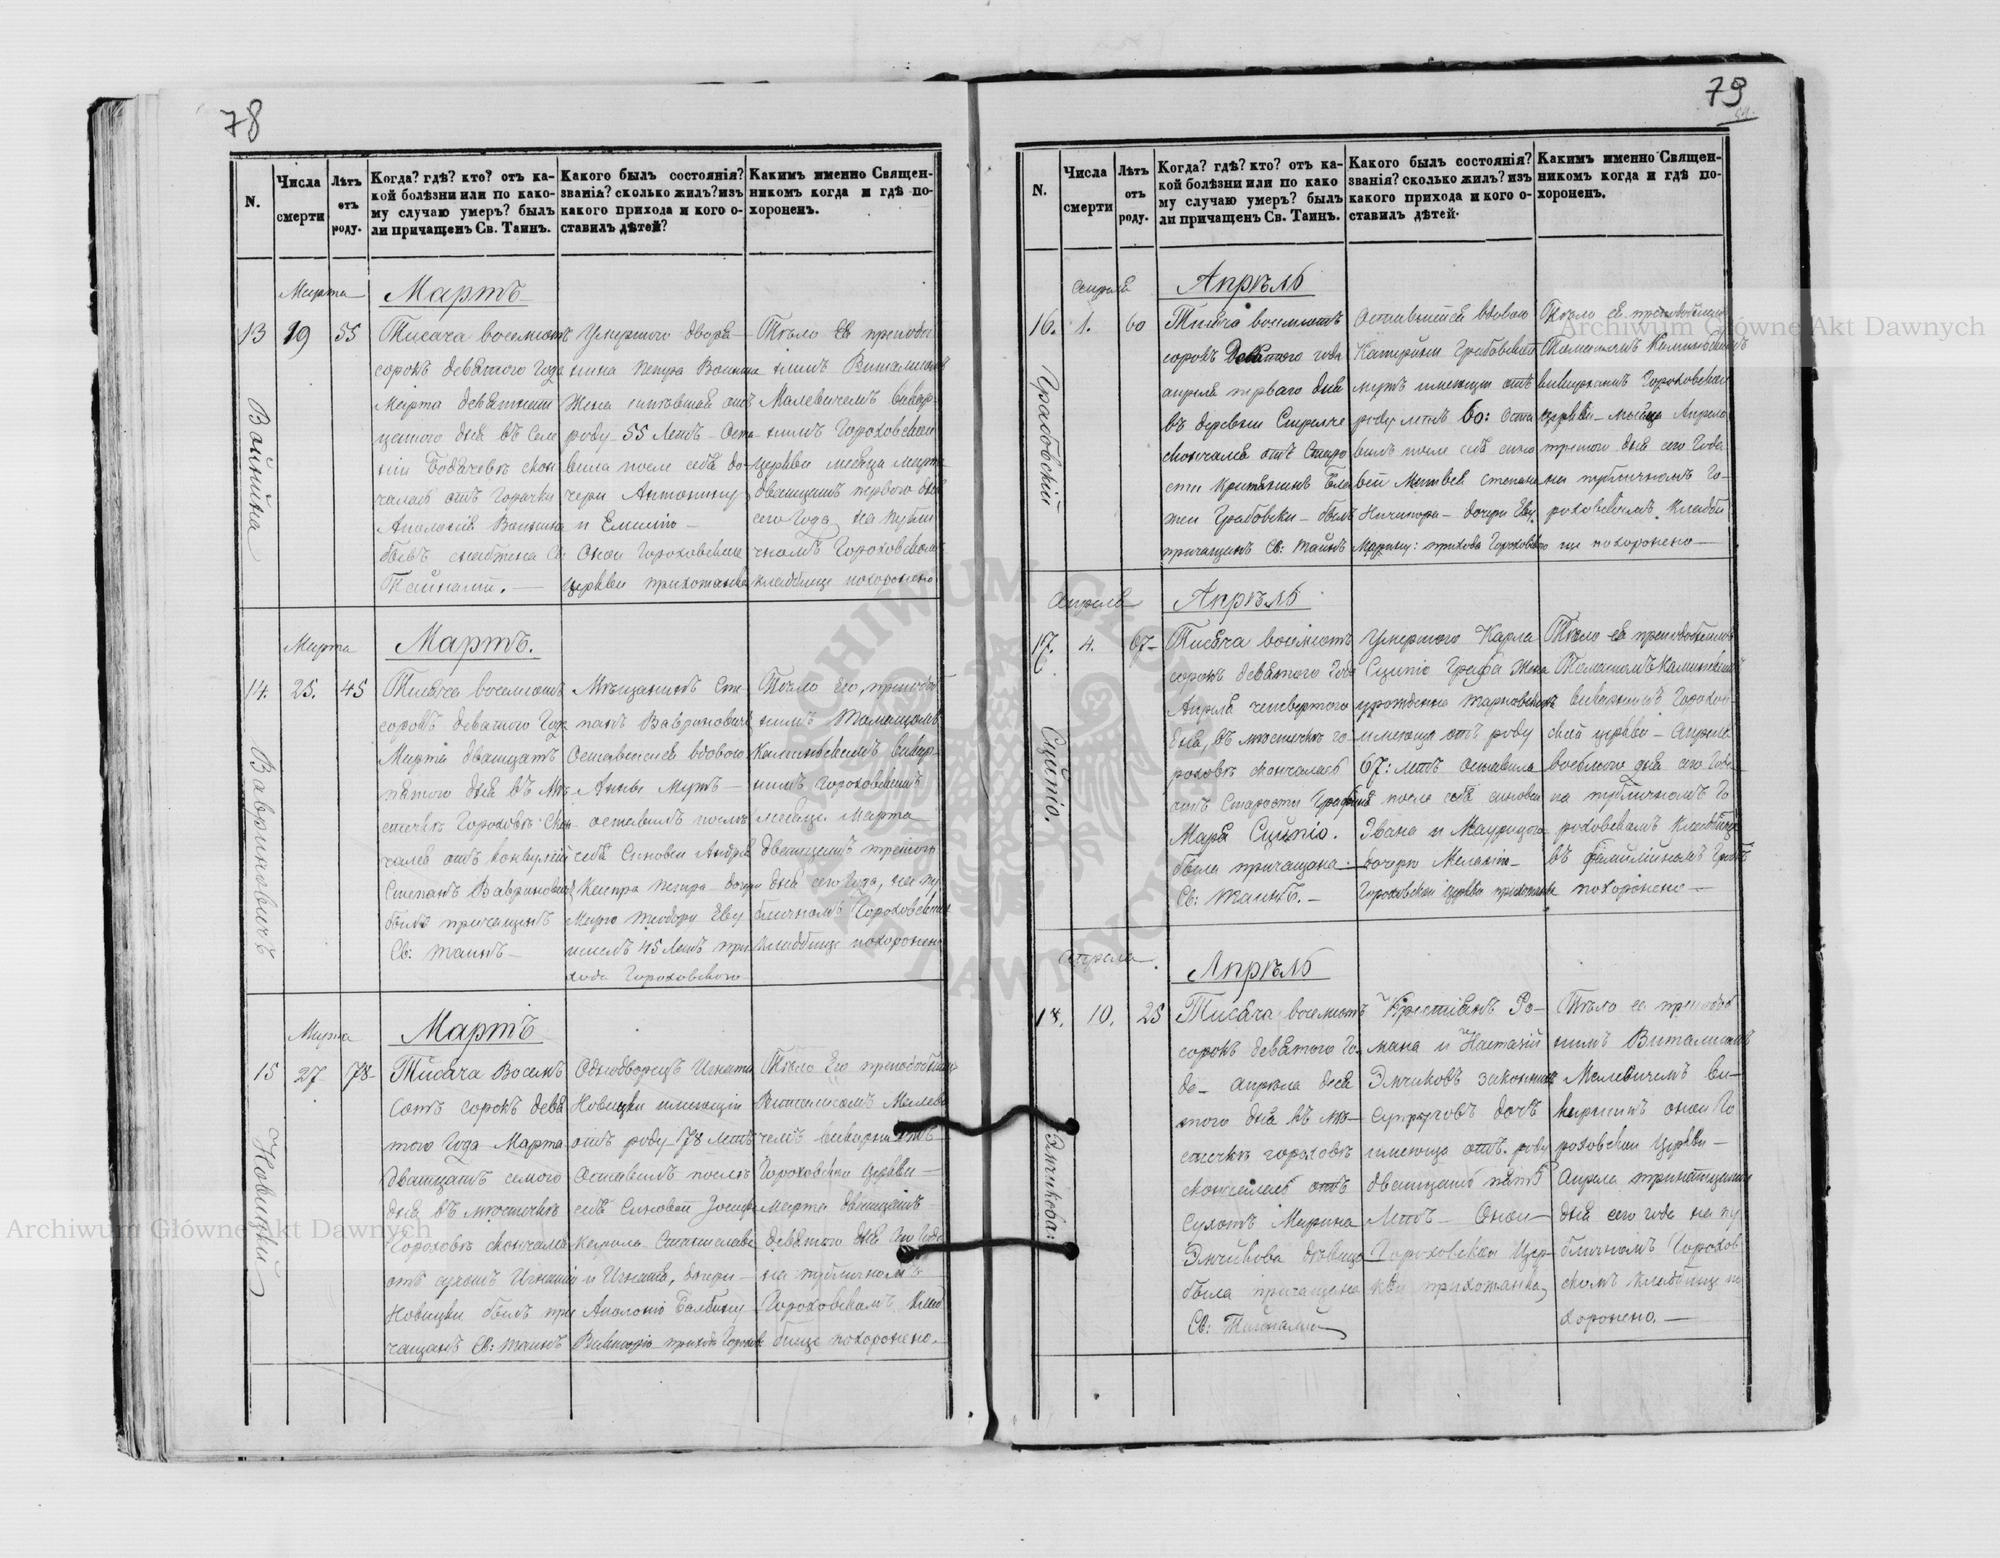 78
N.
Числа смерти
Лѣтъ отъ роду.
Когда? гдѣ? кто? отъ ка-
кой болѣзни или по како-
му случаю умеръ? былъ
ли причащенъ Св. Таинъ.
Какого былъ состоянія?
званія? сколько жилъ? изъ
какого прихода и кого о-
ставилъ дѣтей?
Какимъ именно Священ-
никомъ когда и гдѣ по-
хороненъ.
Марта
Мартъ
13
19
55
Войнина
Тисяча восемсотъ
сорокъ девятого Года
Марта девятнат
цатого дня въ Селе
скон
чалась отъ Горачки
Аполонія Воинина
Тайнами.
Умершого дворя-
нина Петра Воинина
Жена имѣвшая отъ
роду 55 Летъ Оста-
вила после себя до-
чери Антонину
и Емилію
Оной Гороховские
Церкви прихожанка
Тѣло Ея преподоб
нимъ Виталисомъ
Малевичемъ викар-
нимъ Гороховской
Церкви месяца марта
двацать первого дня
сего Года, на публи
чномъ Гороховском
кладбище похоронено.
Марта
Мартъ.
14.
25.
45
Вавриновичъ
Тисяча восемсотъ
сорокъ девятого Года
Марта двацать
пятого дня въ Мѣ
стечкѣ Гороховѣ скон
чался отъ конвулсій
Степанъ Вавринович
былъ причащенъ
Св: таинъ
Мѣщанинъ Сте
панъ Вавриновичъ
Оставшейся вдовою
Анны Мужъ
оставилъ после
себя Синовей Андрея
Петра
Марю Теодору Еву
имелъ 45 Летъ при
хода Гороховского
Тѣло Его, преподоб
нимъ Томашомъ
Каминскимъ викар-
нимъ Гороховскимъ
месяца Марта
дня сего Года, на пу
бличномъ Гороховском
кладбище похоронено
Марта
Мартъ
15
27
78
Новицкий
Тисяча Восемъ
Сотъ сорокъ девя
того Года Марта
двацать семого
дня въ мѣстечкѣ
Гороховѣ скончался
Новицки былъ при
чащанъ Св: таинъ
Однодворецъ Игнати
Новицки имеющій
отъ роду 78 летъ
Оставилъ послѣ
себя Синовей Јосифа
Кароля Станислава
и Игнатія, дочери
Аполонію Балбину
Викторію прихода Горохов
Тѣло Его преподобним
Виталисомъ Малеви
чемъ викарнимъ
Гороховской Церкви
Марта двацать
девятого дня сего Года
на публичномъ
Гороховскомъ клад
бище похоронено.
79
N.
Числа смерти
Лѣтъ отъ роду.
Когда? гдѣ? кто? отъ ка-
кой болѣзни или по како
му случаю умеръ? былъ
ли причащенъ Св. Таинъ.
Какого былъ состоянія?
званія? сколько жилъ? изъ
какого прихода и кого о-
ставилъ дѣтей.
Какимъ именно Священ-
никомъ когда и гдѣ по-
хороненъ.
Апреля
Апрѣль
16.
1.
60
Грабовскій
Тисяча восемсотъ
сорокъ Девятого года
апреля первого дня
въ деревни
скончался отъ старо
сти
Грабовски былъ
причащенъ Св: таинъ
Оставшейся вдовою
Катерини Грабовской
мужъ имеющи отъ
роду летъ 60: оста
вилъ после себя сино
вей Матвея Степана
Ничипора дочери Еву
Марину: прихода Гороховского
Тѣло ея преподобнимъ
Томашомъ Каминскимъ
викарнимъ Гороховской
церкви месяца Апреля
третого дня сего Года
на публичномъ Го-
роховскомъ кладби
щи похоронено
Апреля
Апрѣль
17.
4.
67
Сципіо.
Тисяча восемсотъ
сорокъ девятого Года
Апреля четвертого
дня, въ мѣстечкѣ Го
роховѣ скончалась
отъ старости Графиня
Марія Сципіо.
была причащана
Св: таинъ.
Умершого Карла
Сципіо Графа Жена
урожденна Тарновская
имеюща отъ роду
67: летъ оставила
после себя синовей
Ивана и Маурицого
дочерю Меланію
Гороховской церкви прихожанка
Тѣло ея преподобнимъ
Томашомъ Каминскимъ
викарнимъ Горохов
ской церкви Апреля
восмого дня сего Года
на публичномъ Го
роховскомъ кладбище
въ фамилійномъ гробѣ
похоронено
Апреля.
Апрѣль
18.
10.
25
Янчикова
Тисяча восемсотъ
сорокъ девятого Го-
да апреля деся
того дня въ мѣ-
стечкѣ Гороховѣ
скончалась отъ
Сухотъ Марина
Янчикова дѣвица
была причащена
Св: Тайнами
Крестіянъ Ро-
мана и Настазій
Янчиковъ законних
супруговъ дочъ
имеюща отъ роду
двацать пять
Летъ Оной
Гороховской Цер-
кви прихожанка,
Тѣло ее преподоб
нимъ Виталисомъ
Малевичемъ ви-
карнимъ оной Го
роховской Церкви
Апреля тринатцатого
дня сего года на пу
бличномъ Горохов
скомъ кладбище по
хоронено.
Archiwum Główne Akt Dawnych
Archiwum Główne Akt Dawnych